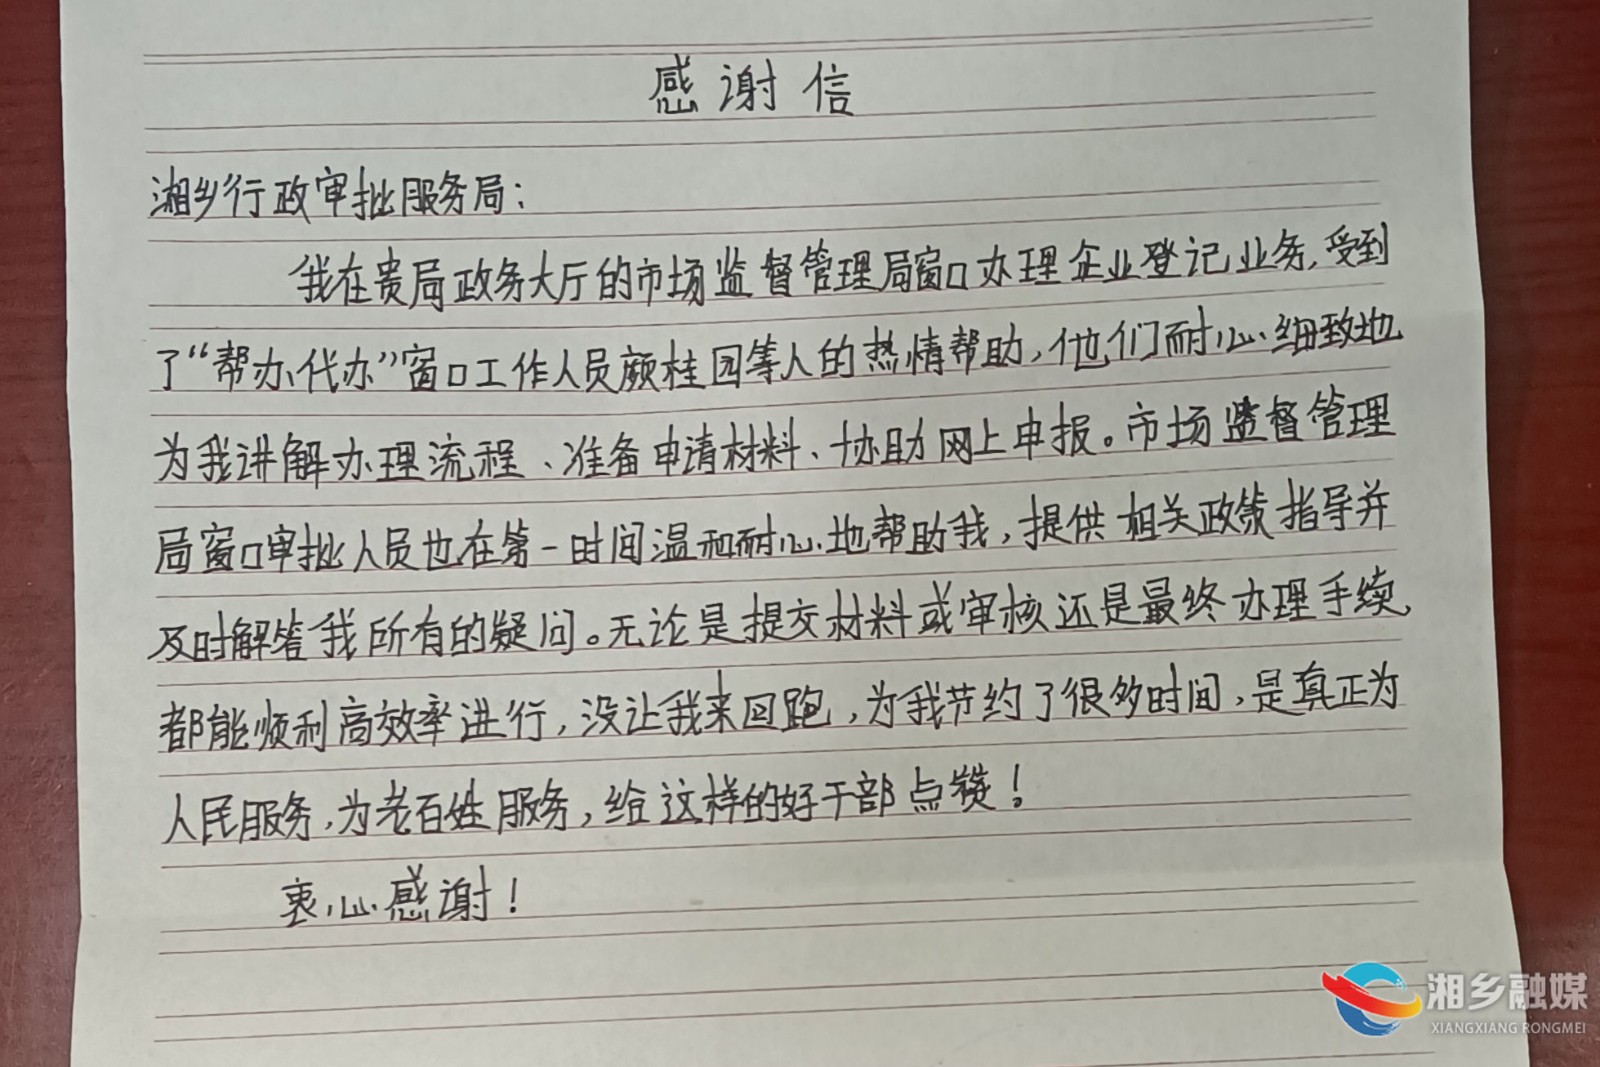 感谢信
湘乡行政审批服务局：
我在贵局政务大厅的市场监督管理局窗口办理企业登记业务，受到
了“帮办代办”窗口工作人员颜桂园等人的热情帮助，他们耐心细致地
为我讲解办理流程、准备申请材料、协助网上申报。市场监督管理
局窗口审批人员也在第一时间温和耐心地帮助我，提供相关政策指导并
及时解答我所有的疑问。无论是提交材料或审核还是最终办理手续，
都能顺利高效率进行，没让我来回跑，为我节约了很多时间，是真正为
人民服务，为老百姓服务，给这样的好干部点赞！
衷心感谢！
湘乡融媒
XIANGXIANG RONGMEI